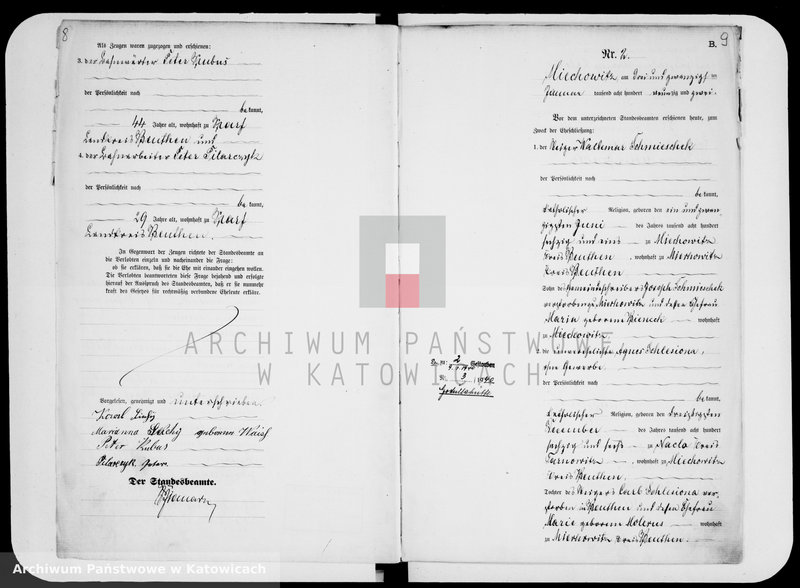 8
Als Zeugen waren zugezogen und erschienen:
3. der Bahnwärter Peter Kubus
der Persönlichkeit nach
be kannt,
44 Jahre alt, wohnhaft zu Karf
Landkreis Beuthen und
4. der Bahnarbeiter Peter Pilarczyk
der Persönlichkeit nach
be kannt,
29 Jahre alt, wohnhaft zu Karf
Landkreis Beuthen.
In Gegenwart der Zeugen richtete der Standesbeamte an
die Verlobten einzeln und nacheinander die Frage:
ob sie erklären, daß sie die Ehe mit einander eingehen wollen.
Die Verlobten beantworteten diese Frage bejahend und erfolgte
hierauf der Ausspruch des Standesbeamten, daß er sie nunmehr
kraft des Gesetzes für rechtmäßig verbundene Eheleute erkläre.
Vorgelesen, genehmigt und unterschrieben.
Karl
Marianna geborene
Peter Kubus
Pilarczyk Peter
Der Standesbeamte.
9
B.
Nr. 2.
Miechowitz, am drei und zwanzigsten
Januar tausend acht hundert neunzig und zwei.
Vor dem unterzeichneten Standesbeamten erschienen heute, zum
Zweck der Eheschließung:
1. der Steiger Waldemar Schmieschek
der Persönlichkeit nach
be kannt,
katholischer Religion, geboren den ein und zwan-
zigsten Juni des Jahres tausend acht hundert
sechzig und eins zu Miechowitz
Kreis Beuthen, wohnhaft zu Miechowitz
Kreis Beuthen
Sohn des Gemeindeschreibers Joseph Schmieschek
verstorben zu Miechowitz und dessen Ehefrau
Maria geborene Bieneck wohnhaft
zu Miechowitz
2. die unverehelichte Agnes Schlesiona,
ohne Gewerbe.
der Persönlichkeit nach
be kannt,
katholischer Religion, geboren den dreizigsten
Dezember des Jahres tausend acht hundert
sechzig und sechs zu Naclo Kreis
Tarnowitz, wohnhaft zu Miechowitz
Kreis Beuthen,
Tochter des Steigers Carl Schlesiona ver-
storben in Beuthen und dessen Ehefrau
Marie geborene Molerus wohnhaft
zu Miechowitz Kreis Beuthen.
ARCHIWUM PAŃSTWOWE
W KATOWICACH
Archiwum Państwowe w Katowicach